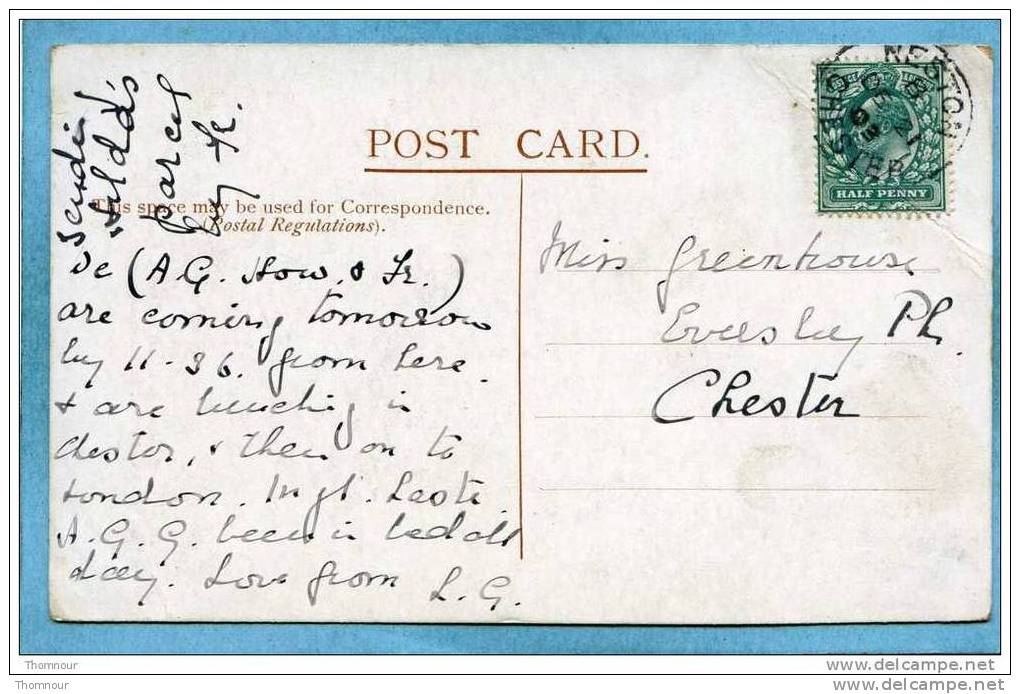 Sending
Hilda's
Parcel
by Fr.
POST CARD.
This space may be used for Correspondence.
(Postal Regulations).
We (A.G. How. & Fr.)
are coming tomorrow
by 11-36. from here.
& are lunching in
Chester, & then on to
London. In gt. haste
A.G.G. been in bed all
day. Love from
L.G.
NESTON
CHESTER
HALF PENNY
Miss Greenhouse
Eversley Pk.
Chester
Thomnour
Thomnour
www.delcampe.net
www.delcampe.net